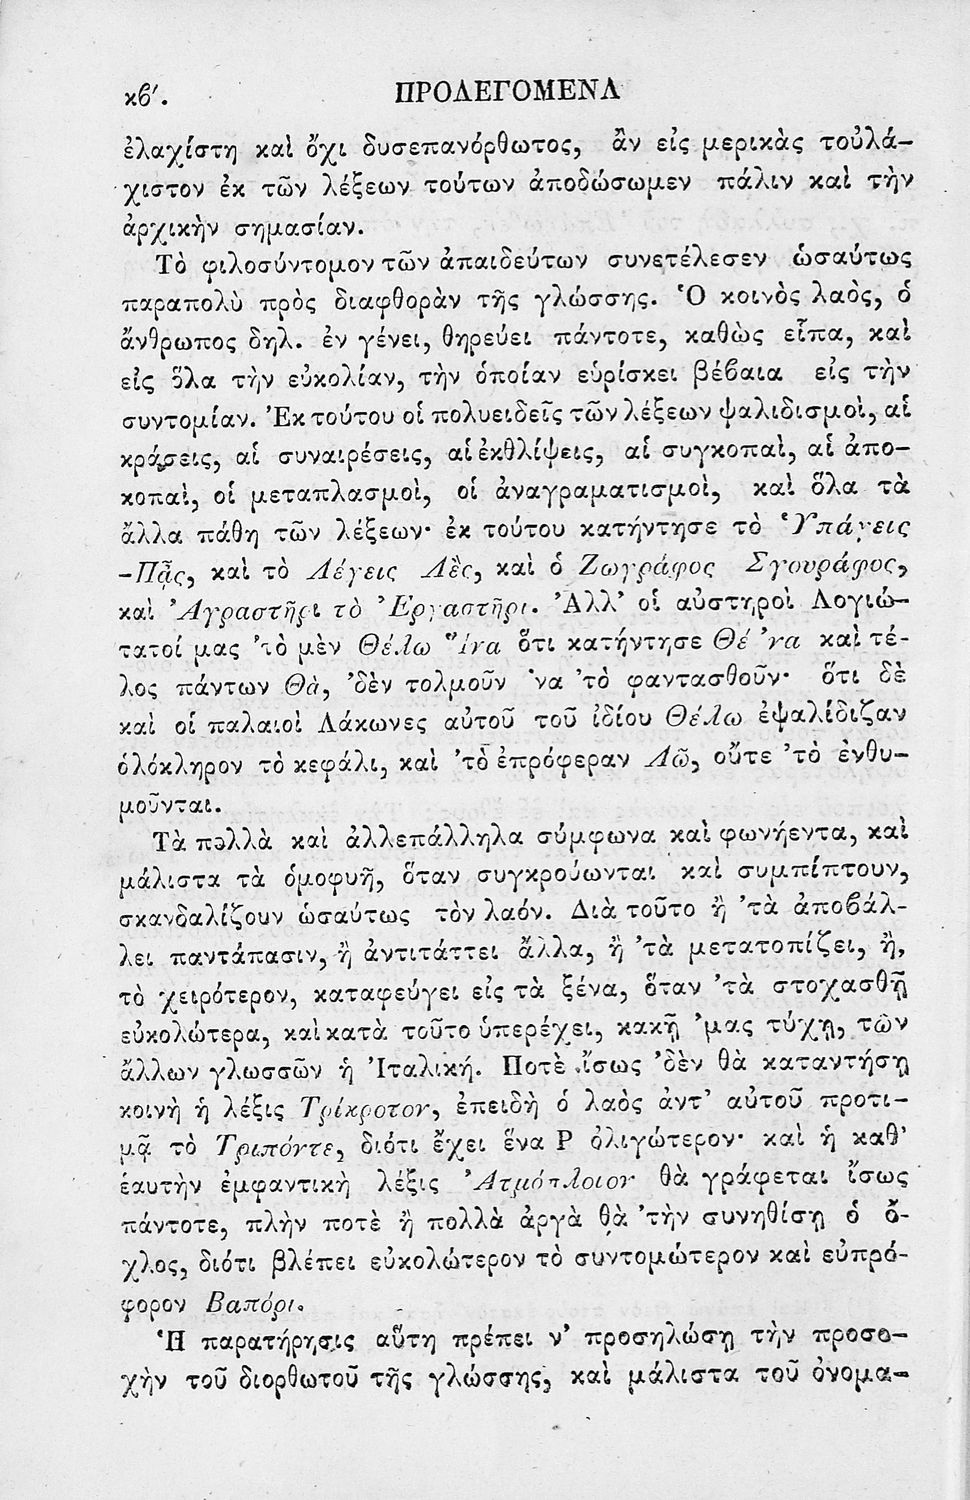 κϐ΄.
ΠΡΟΛΕΓΟΜΕΝΑ
ἐλαχίστη καὶ ὄχι δυσεπανόρθωτος, ἂν εἰς μερικὰς τοὐλά-
χιστον ἐκ τῶν λέξεων τούτων ἀποδώσωμεν πάλιν καὶ τὴν
ἀρχικὴν σημασίαν.
Τὸ φιλοσύντομον τῶν ἀπαιδεύτων συνετέλεσεν ὡσαύτως
παραπολὺ πρὸς διαφθορὰν τῆς γλώσσης. Ὁ κοινὸς λαὸς, ὁ
ἄνθρωπος δηλ. ἐν γένει, θηρεύει πάντοτε, καθὼς εἶπα, καὶ
εἰς ὅλα τὴν εὐκολίαν, τὴν ὁποίαν εὑρίσκει βέϐαια εἰς τὴν
συντομίαν. Ἐκ τούτου οἱ πολυειδεῖς τῶν λέξεων ψαλιδισμοὶ, αἱ
κράσεις, αἱ συναιρέσεις, αἱ ἐκθλίψεις, αἱ συγκοπαὶ, αἱ ἀπο-
κοπαὶ, οἱ μεταπλασμοὶ, οἱ ἀναγραματισμοὶ, καὶ ὅλα τὰ
ἄλλα πάθη τῶν λέξεων· ἐκ τούτου κατήντησε τὸ Ὑπάγεις
-Πᾷς, καὶ τὸ Λέγεις Λὲς, καὶ ὁ Ζωγράφος Σγουράφος,
καὶ Ἀγραστῆρι τὸ Ἐργαστῆρι. Ἀλλ’ οἱ αὐστηροὶ Λογιώ-
τατοί μας ’τὸ μὲν Θέλω Ἵνα ὅτι κατήντησε Θέ ’να καὶ τέ-
λος πάντων Θὰ, ’δὲν τολμοῦν ’να ’τὸ φαντασθοῦν· ὅτι δὲ
καὶ οἱ παλαιοὶ Λάκωνες αὐτοῦ τοῦ ἰδίου Θέλω ἐψαλίδιζαν
ὁλόκληρον τὸ κεφάλι, καὶ ’τὸ ἐπρόφεραν Λῶ, οὔτε ’τὸ ἐνθυ-
μοῦνται.
Τὰ πολλὰ καὶ ἀλλεπάλληλα σύμφωνα καὶ φωνήεντα, καὶ
μάλιστα τὰ ὁμοφυῆ, ὅταν συγκρούωνται καὶ συμπίπτουν,
σκανδαλίζουν ὡσαύτως τὸν λαόν. Διὰ τοῦτο ἢ ’τὰ ἀποϐάλ-
λει παντάπασιν, ἢ ἀντιτάττει ἄλλα, ἢ ’τὰ μετατοπίζει, ἢ,
τὸ χειρότερον, καταφεύγει εἰς τὰ ξένα, ὅταν ’τὰ στοχασθῇ
εὐκολώτερα, καὶ κατὰ τοῦτο ὑπερέχει, κακῇ ’μας τύχῃ, τῶν
ἄλλων γλωσσῶν ἡ Ἰταλική. Ποτὲ ἴσως ’δὲν θὰ καταντήσῃ
κοινὴ ἡ λέξις Τρίκροτον, ἐπειδὴ ὁ λαὸς ἀντ’ αὐτοῦ προτι-
μᾷ τὸ Τριπόντε, διότι ἔχει ἕνα Ρ ὀλιγώτερον· καὶ ἡ καθ’
ἑαυτὴν ἐμφαντικὴ λέξις Ἀτμόπλοιον θὰ γράφεται ἴσως
πάντοτε, πλὴν ποτὲ ἢ πολλὰ ἀργὰ θὰ ’τὴν συνηθίσῃ ὁ ὄ-
χλος, διότι βλέπει εὐκολώτερον τὸ συντομώτερον καὶ εὐπρό-
φορον Βαπόρι.
Ἡ παρατήρησις αὕτη πρέπει ν’ προσηλώσῃ τὴν προσο-
χὴν τοῦ διορθωτοῦ τῆς γλώσσης, καὶ μάλιστα τοῦ ὀνομα-